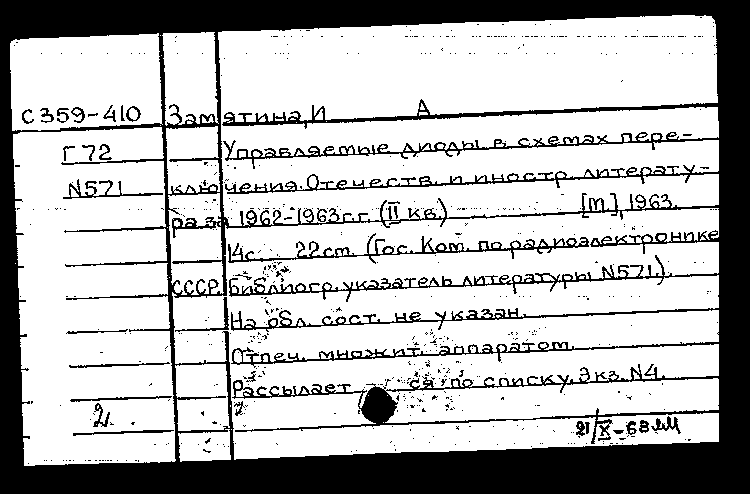 С359-410 Замятина, И А
Г72 Управляемые диоды в схемах пере-
N571 ключения. Отечеств. и иностр. литерату-
ра за 1962-1963г.г. (II кв.) [М], 1963.
14с. 22см. (Гос. Ком. по радиоэлектронике
СССР. Библиогр. указатель литературы N571).
На обл. сост. не указан.
Отпеч. множит. аппаратом.
Рассылает ся по списку. Экз. N4.
2
21/X-63